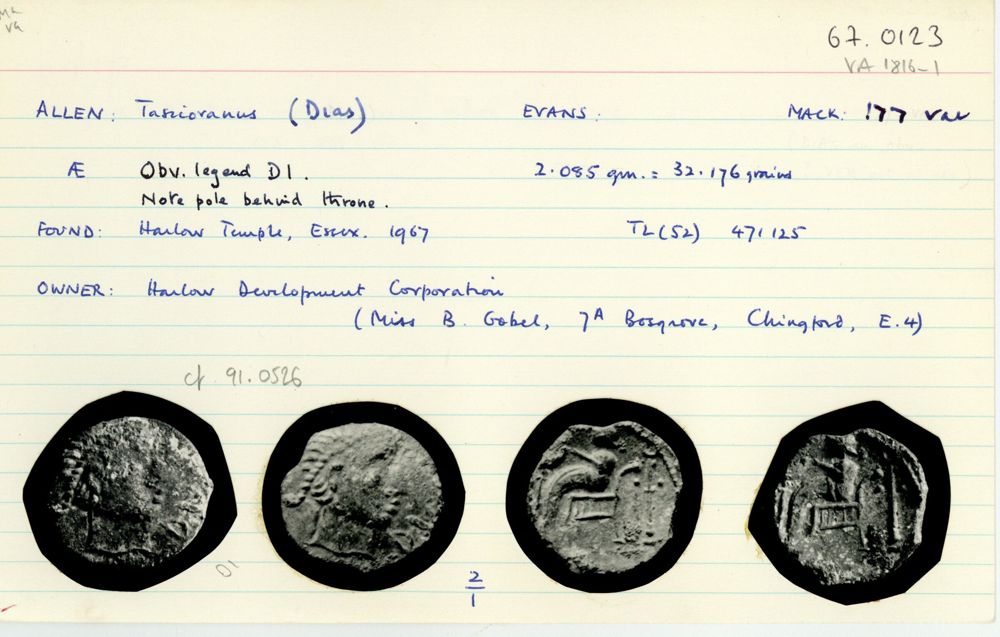 Ma
VA
67.0123
VA 1816-1
ALLEN: Tasciovanus (Dias) EVANS: MACK: 177 var
Æ Obv. legend DI. 2.085 gm. = 32.176 grains
Note pole behind throne.
FOUND: Harlow Temple, Essex. 1967 TL(52) 471125
OWNER: Harlow Development Corporation
(Miss B. Gobel, 7A Bosgrove, Chingford, E.4)
cf. 91.0526
DI
2
1